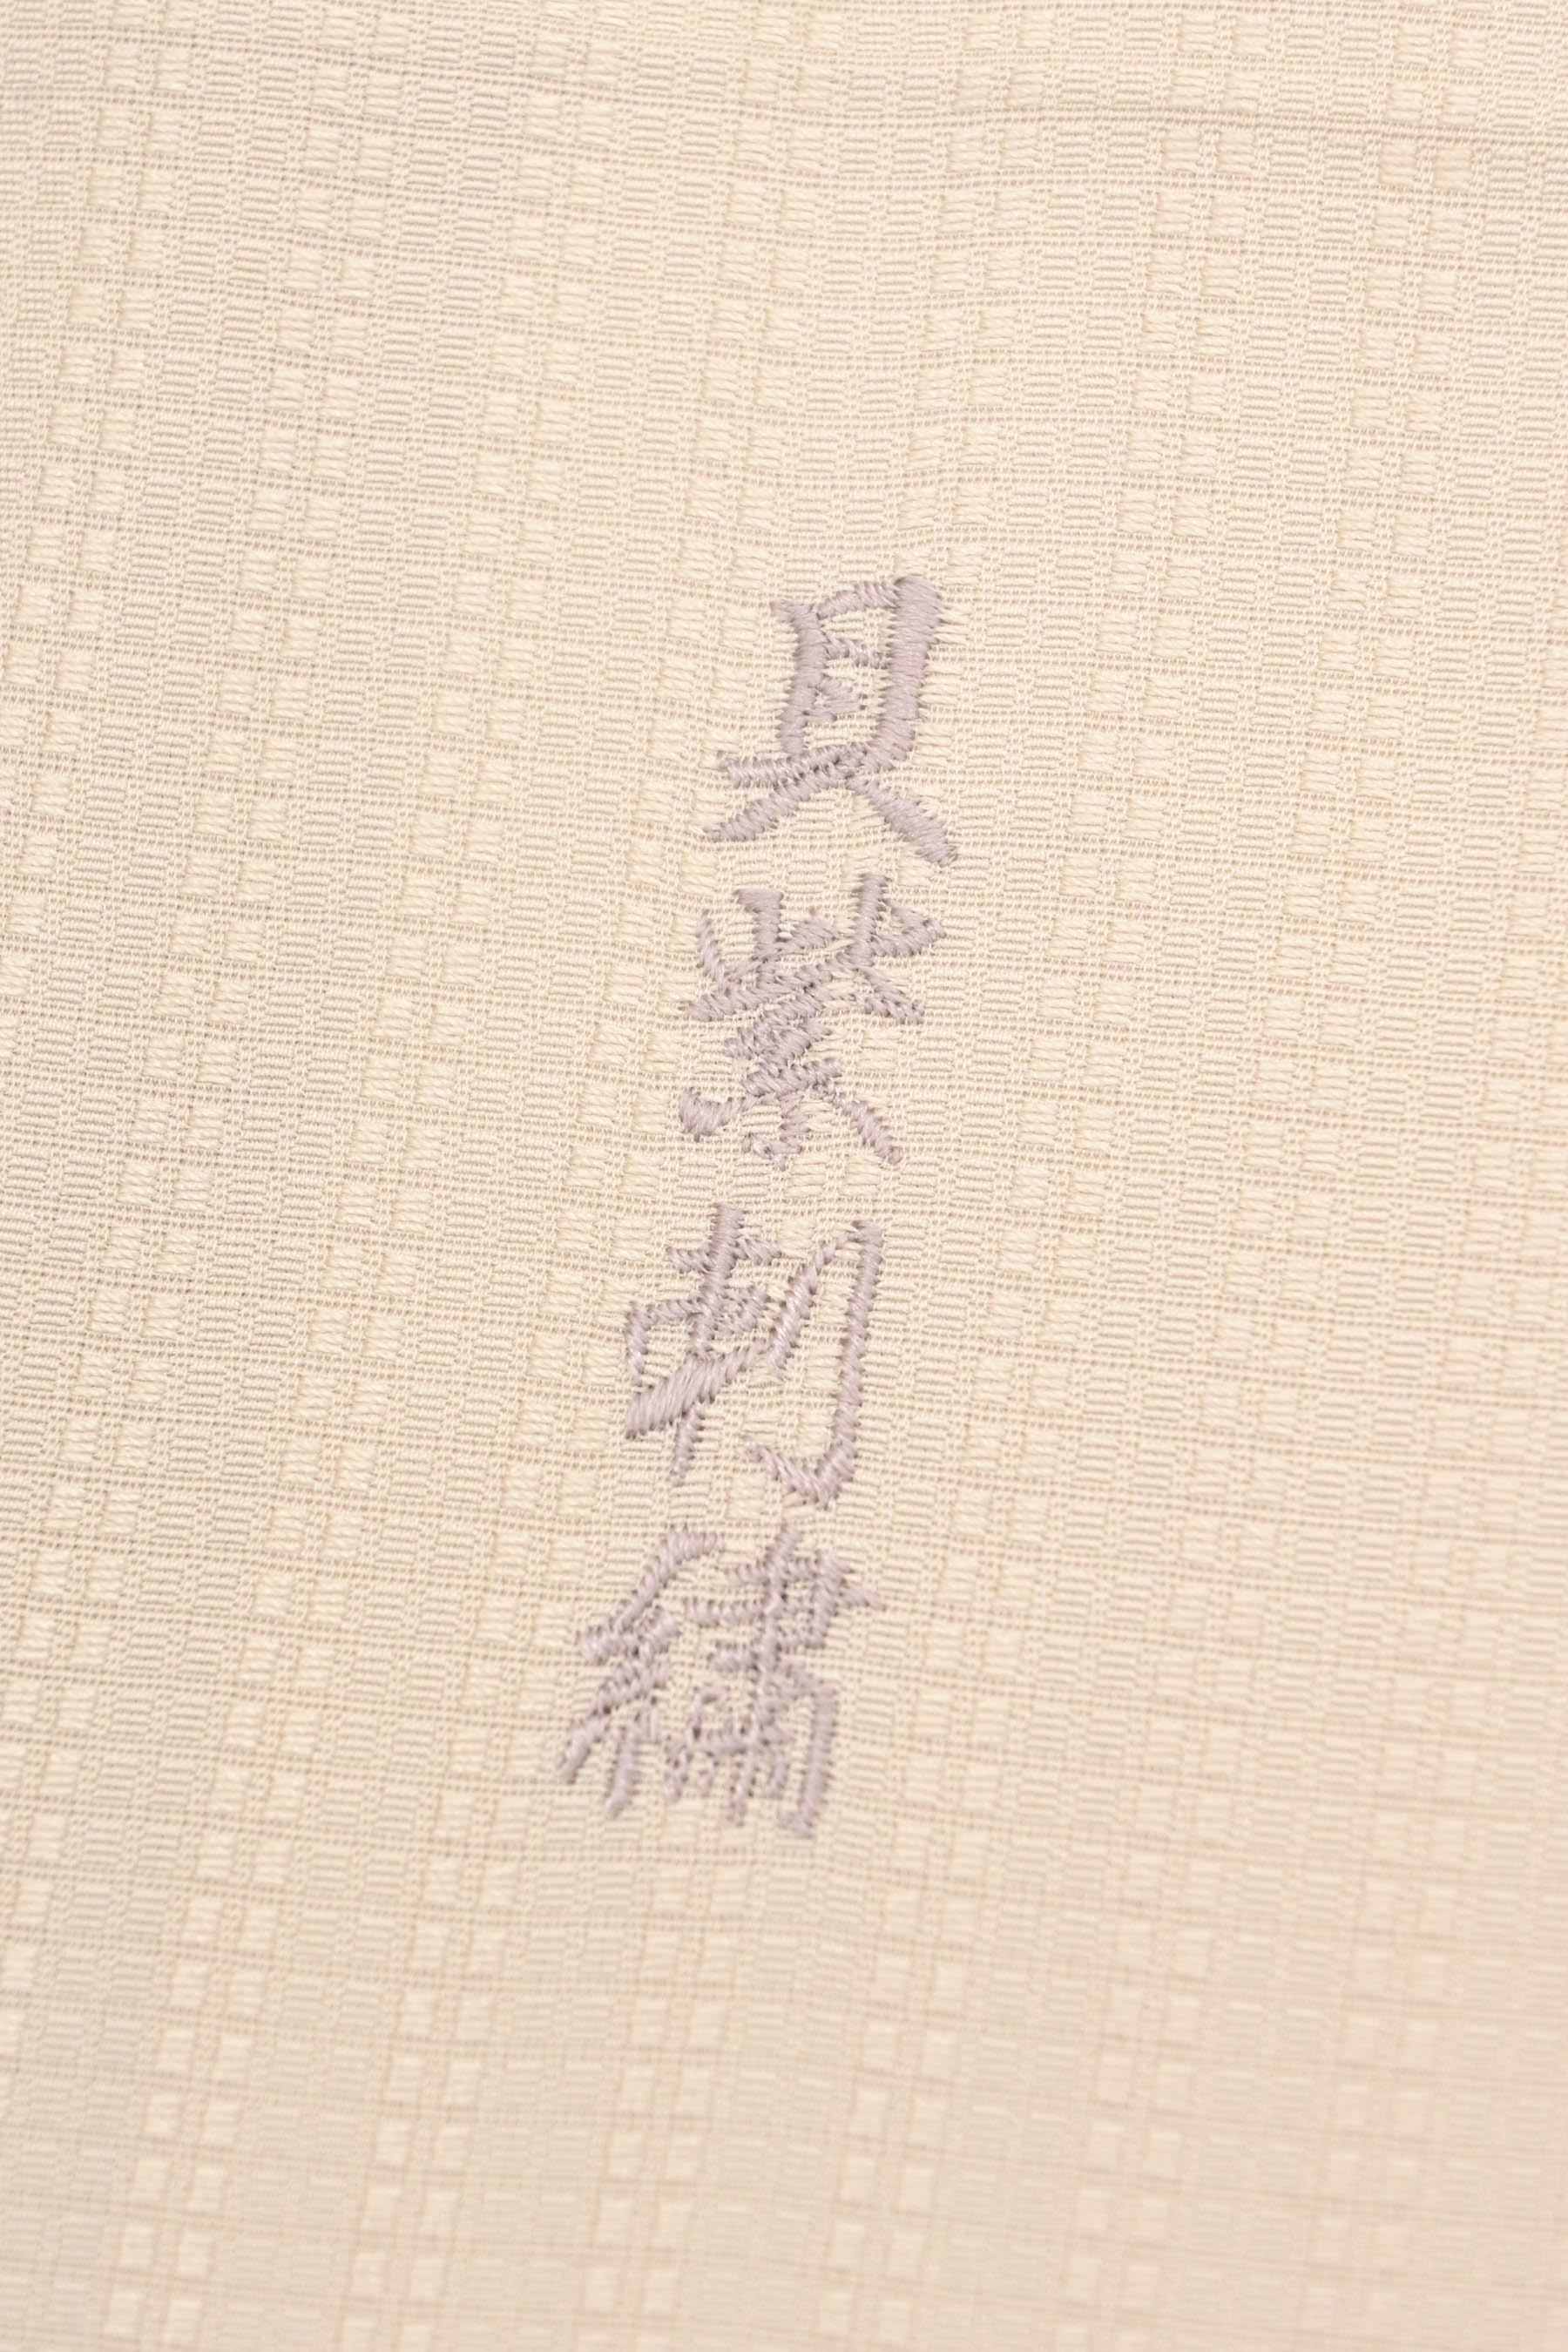 貝紫刺繍